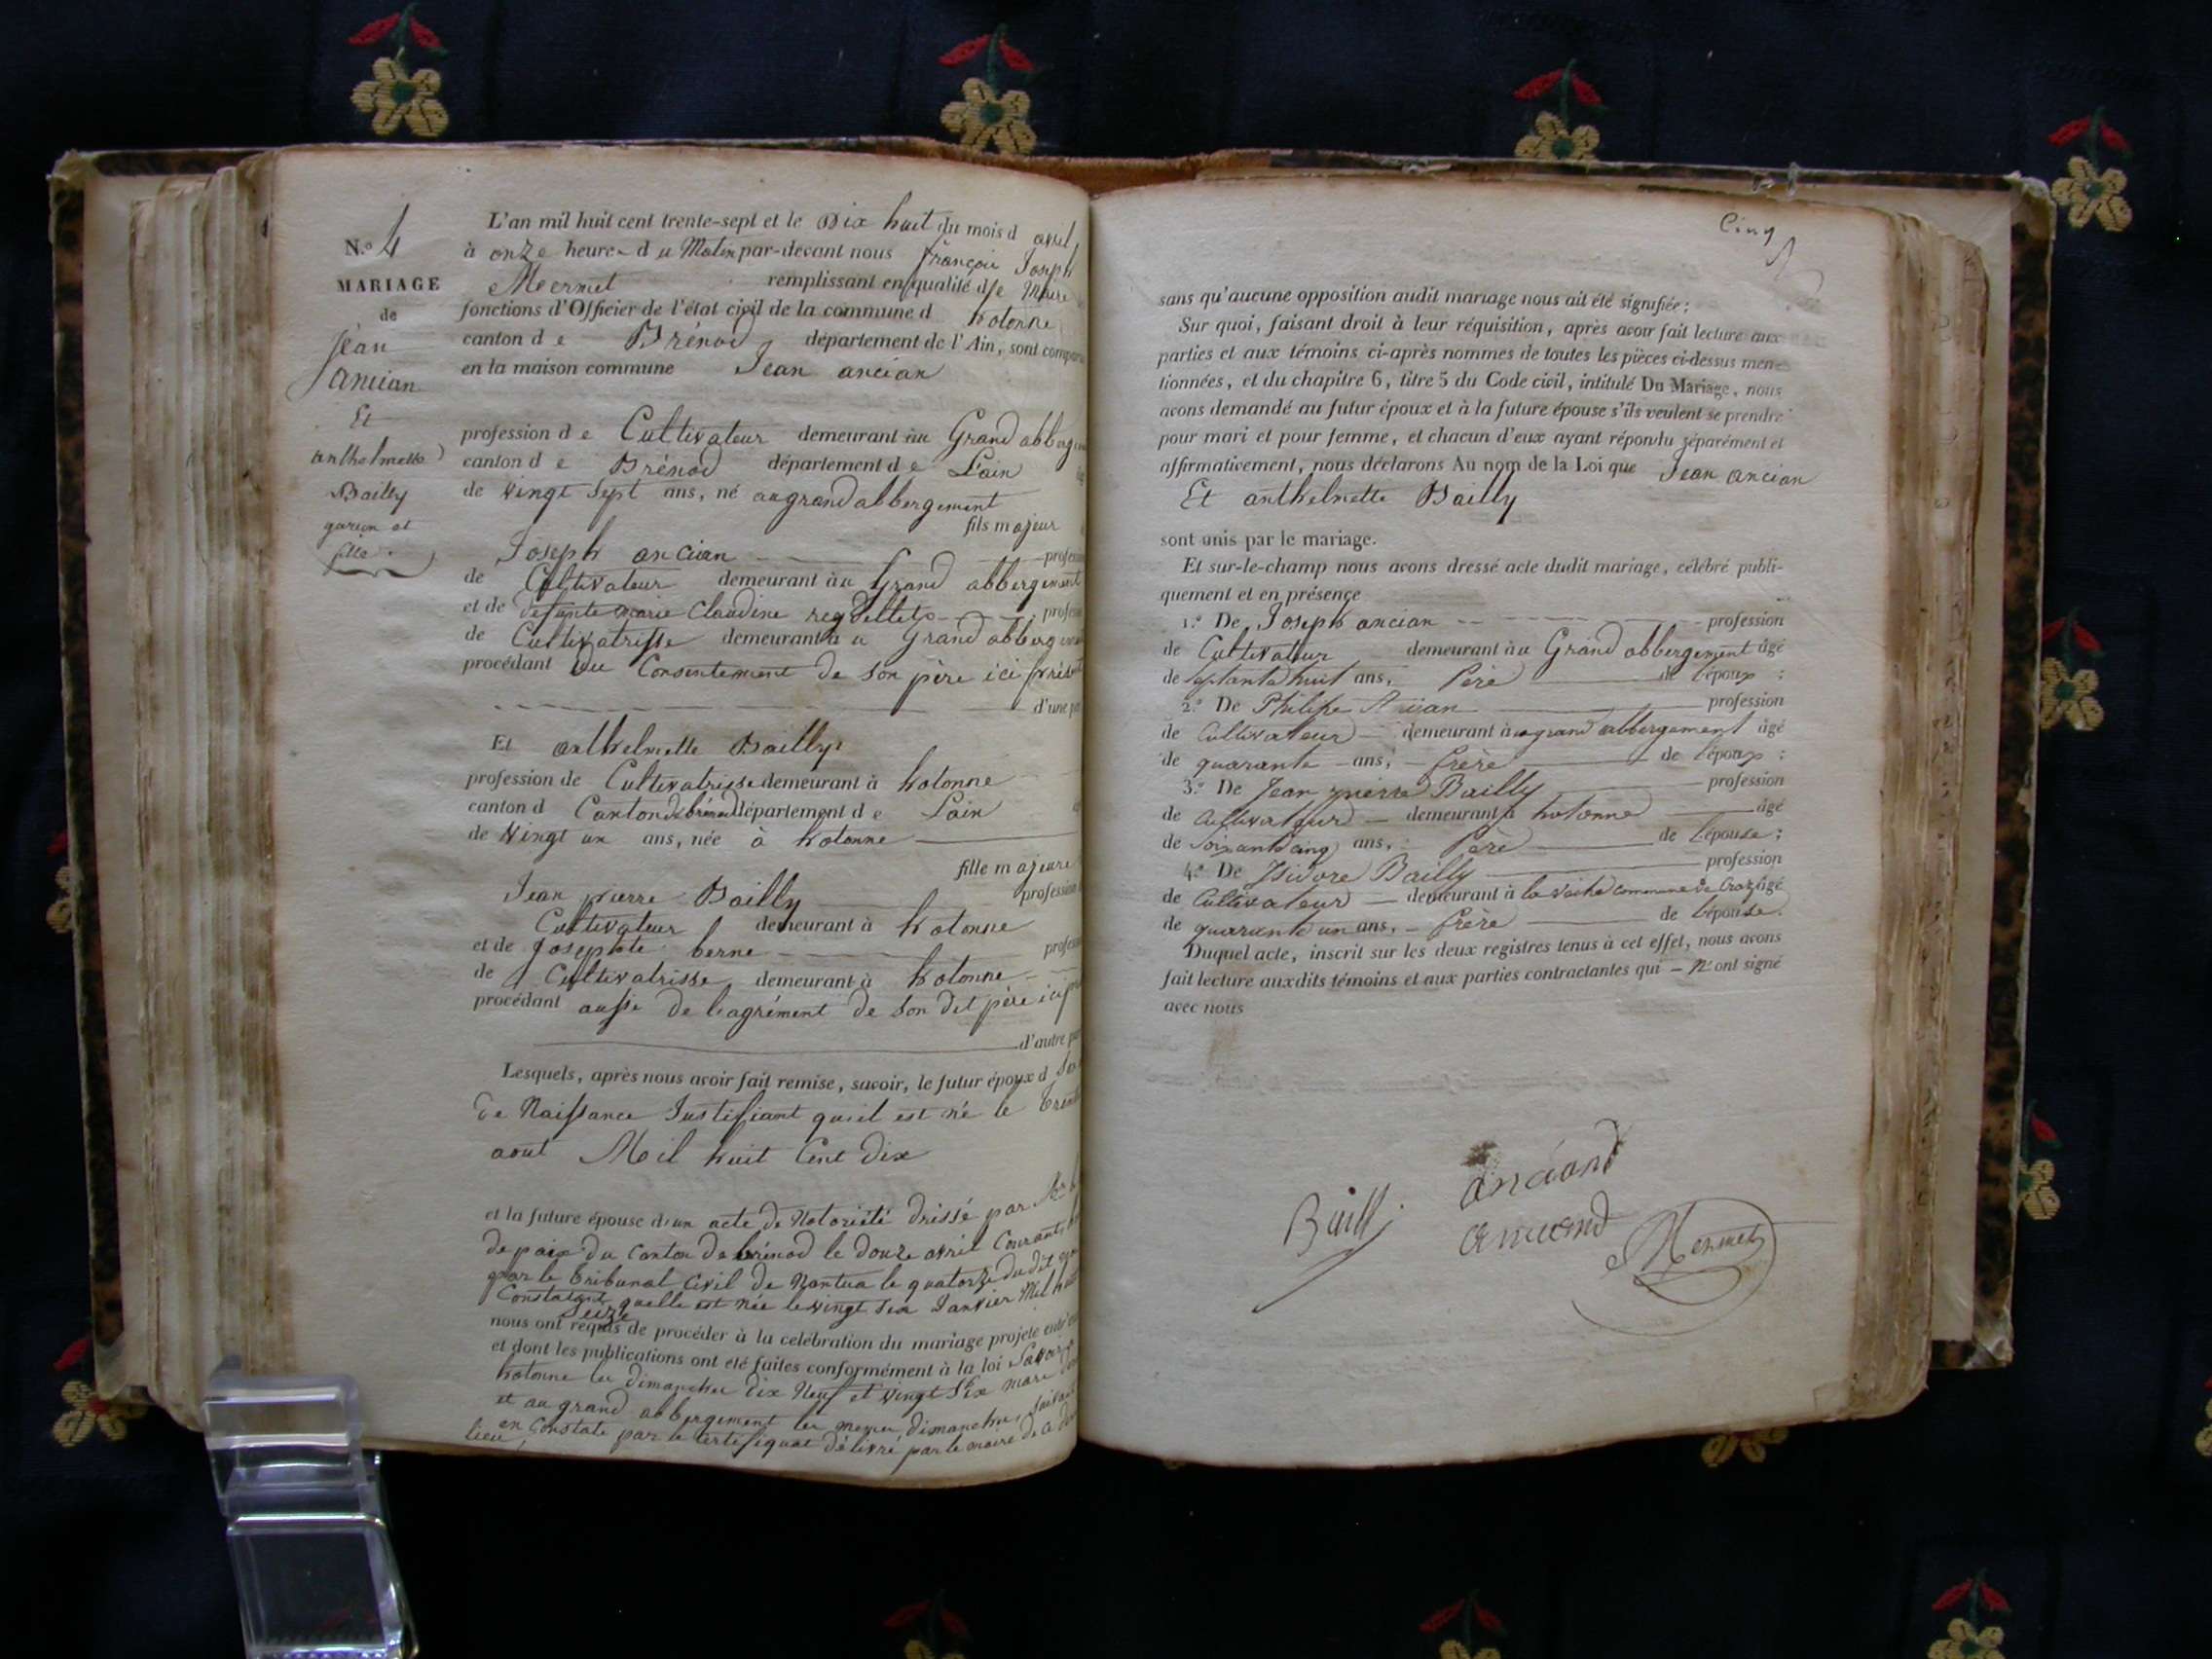 N.o 4
MARIAGE
de
Jéan
Ancian
Et
anthelmette
Bailly
garçon et
fille.
L'an mil huit cent trente-sept et le Dix huit du mois d avril
à onze heure d u Matin par-devant nous françois Joseph
Mermet remplissant en qualité de Maire
fonctions d'Officier de l'état civil de la commune d hotonne
canton d e Brénod département de l'Ain, sont compar
en la maison commune Jean ancian
profession d e Cultivateur demeurant au Grand abberge
canton d e Brénod département d e L'ain
de vingt sept ans, né au grand abbergement
fils majeur
Joseph ancian profes
de Cultivateur demeurant à u Grand abbergement
et de defunte marie Claudine profes
de Cultivatrisse demeurant à u Grand abberg
procédant du Consentement de son père ici présent
d'une p
Et anthelmette Bailly
profession de Cultivatrisse demeurant à hotonne
canton d Canton de brénod département d e Lain
de vingt un ans, née à hotonne
fille majeure
Jean pierre Bailly profession
Cultivateur demeurant à hotonne
et de Josephte berne profes
de Cultivatrisse demeurant à hotonne
procédant aussi de l'agrément de son dit père ici
d'autre p
Lesquels, après nous avoir fait remise, savoir, le futur époux d son
de Naissance Justifiant qu'il est né le trente
aout Mil huit Cent dix
et la future épouse d'un acte de Notoriété drissé par
de paix du Canton de brénod le douze avril Courant
par le tribunal Civil de Nantua le quatorze du dit
Constatant quelle est née le vingt six Janvier Mil huit
seize
nous ont requis de procéder à la celébration du mariage projeté entr'e
et dont les publications ont été faites conformément à la loi Savoir
hotonne les dimanches dix Neuf et vingt Six mars
et au grand abbergement les meme dimanches
en Constate par le certifiquat délivré par le maire de
lieu,
Cinq
sans qu'aucune opposition audit mariage nous ait été signifiée;
Sur quoi, faisant droit à leur réquisition, après avoir fait lecture aux
parties et aux témoins ci-après nommes de toutes les pièces ci-dessus men-
tionnées, et du chapitre 6, titre 5 du Code civil, intitulé Du Mariage, nous
avons demandé au futur époux et à la future épouse s'ils veulent se prendre
pour mari et pour femme, et chacun d'eux ayant répondu séparément et
affirmativement, nous déclarons Au nom de la Loi que Jean ancian
Et anthelmette Bailly
sont unis par le mariage.
Et sur-le-champ nous avons dressé acte dudit mariage, célébré publi-
quement et en présence
1.o De Joseph ancian profession
de Cultivateur demeurant à u Grand abbergement âgé
de septante huit ans, Père de l'époux ;
2.o De Philipe Ancian profession
de Cultivateur demeurant à u grand abbergement âgé
de quarante ans, frère de l'époux ;
3.o De Jean pierre Bailly profession
de Cultivateur demeurant à hotonne âgé
de Soixante cinq ans, Père de l'épouse ;
4.o De Isidore Bailly profession
de Cultivateur demeurant à la commune de Craz âgé
de quarante un ans, frère de l'épouse.
Duquel acte, inscrit sur les deux registres tenus à cet effet, nous avons
fait lecture auxdits témoins et aux parties contractantes qui n'ont signé
avec nous
anciand
Bailly
anciand
Mermet